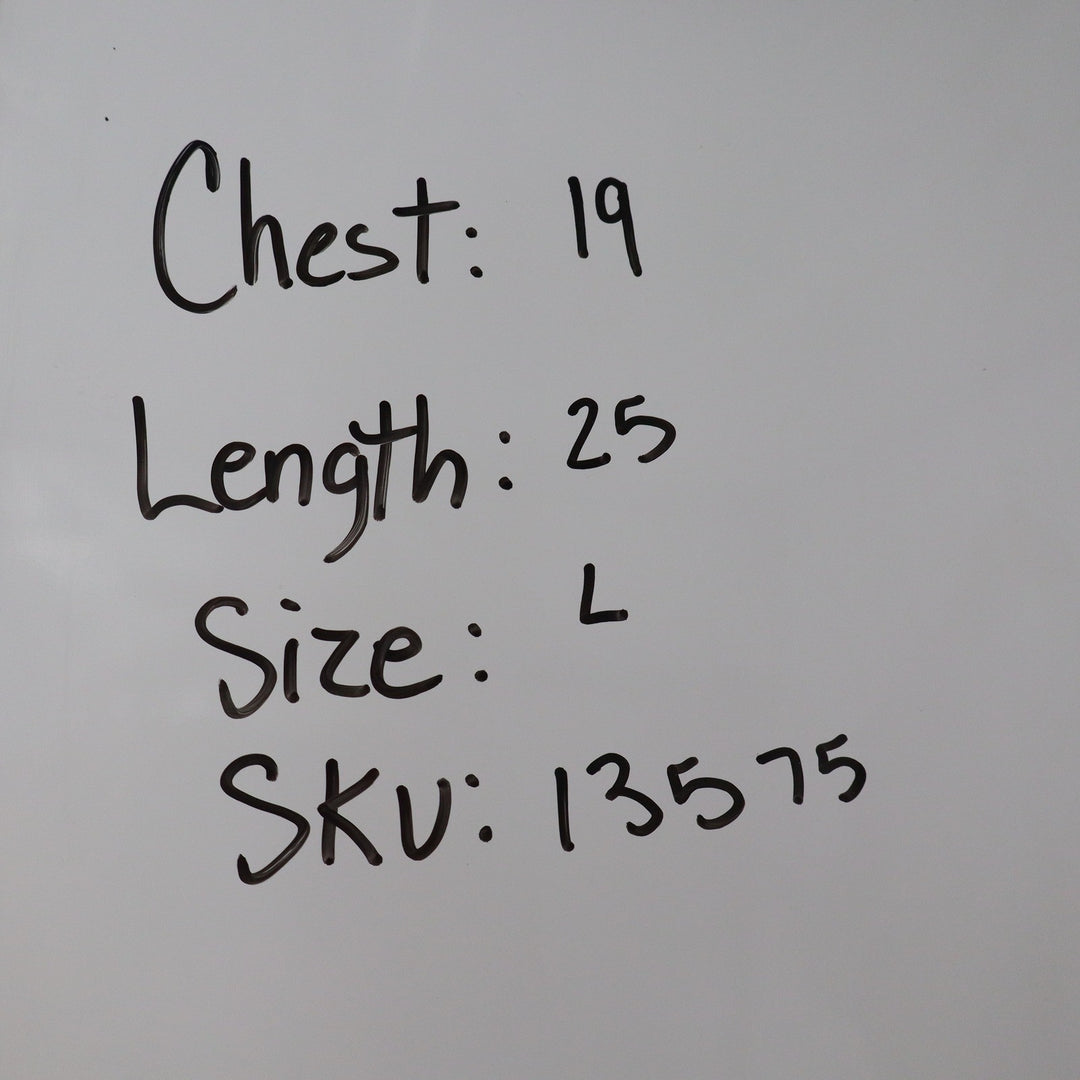 Chest: 19
Length: 25
Size: L
SKU: 13575